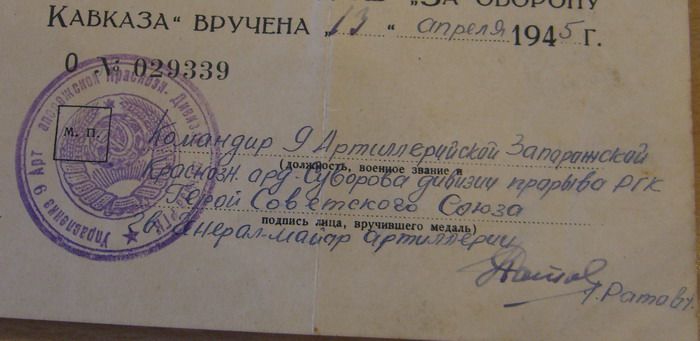 „ЗА ОБОРОНУ
КАВКАЗА“ ВРУЧЕНА „13“ апреля 1945 г.
О № 029339
М. П.
Управление 9 Арт Запорожской Краснозн. Дивиз
Командир 9 Артиллерийской Запаражской
(должность, военное звание и
Краснозн. орд. Суворова дивизии прорыва РГК
Герой Советского Союза
подпись лица, вручившего медаль)
Гв. Генерал-майор артиллерии
Ратов